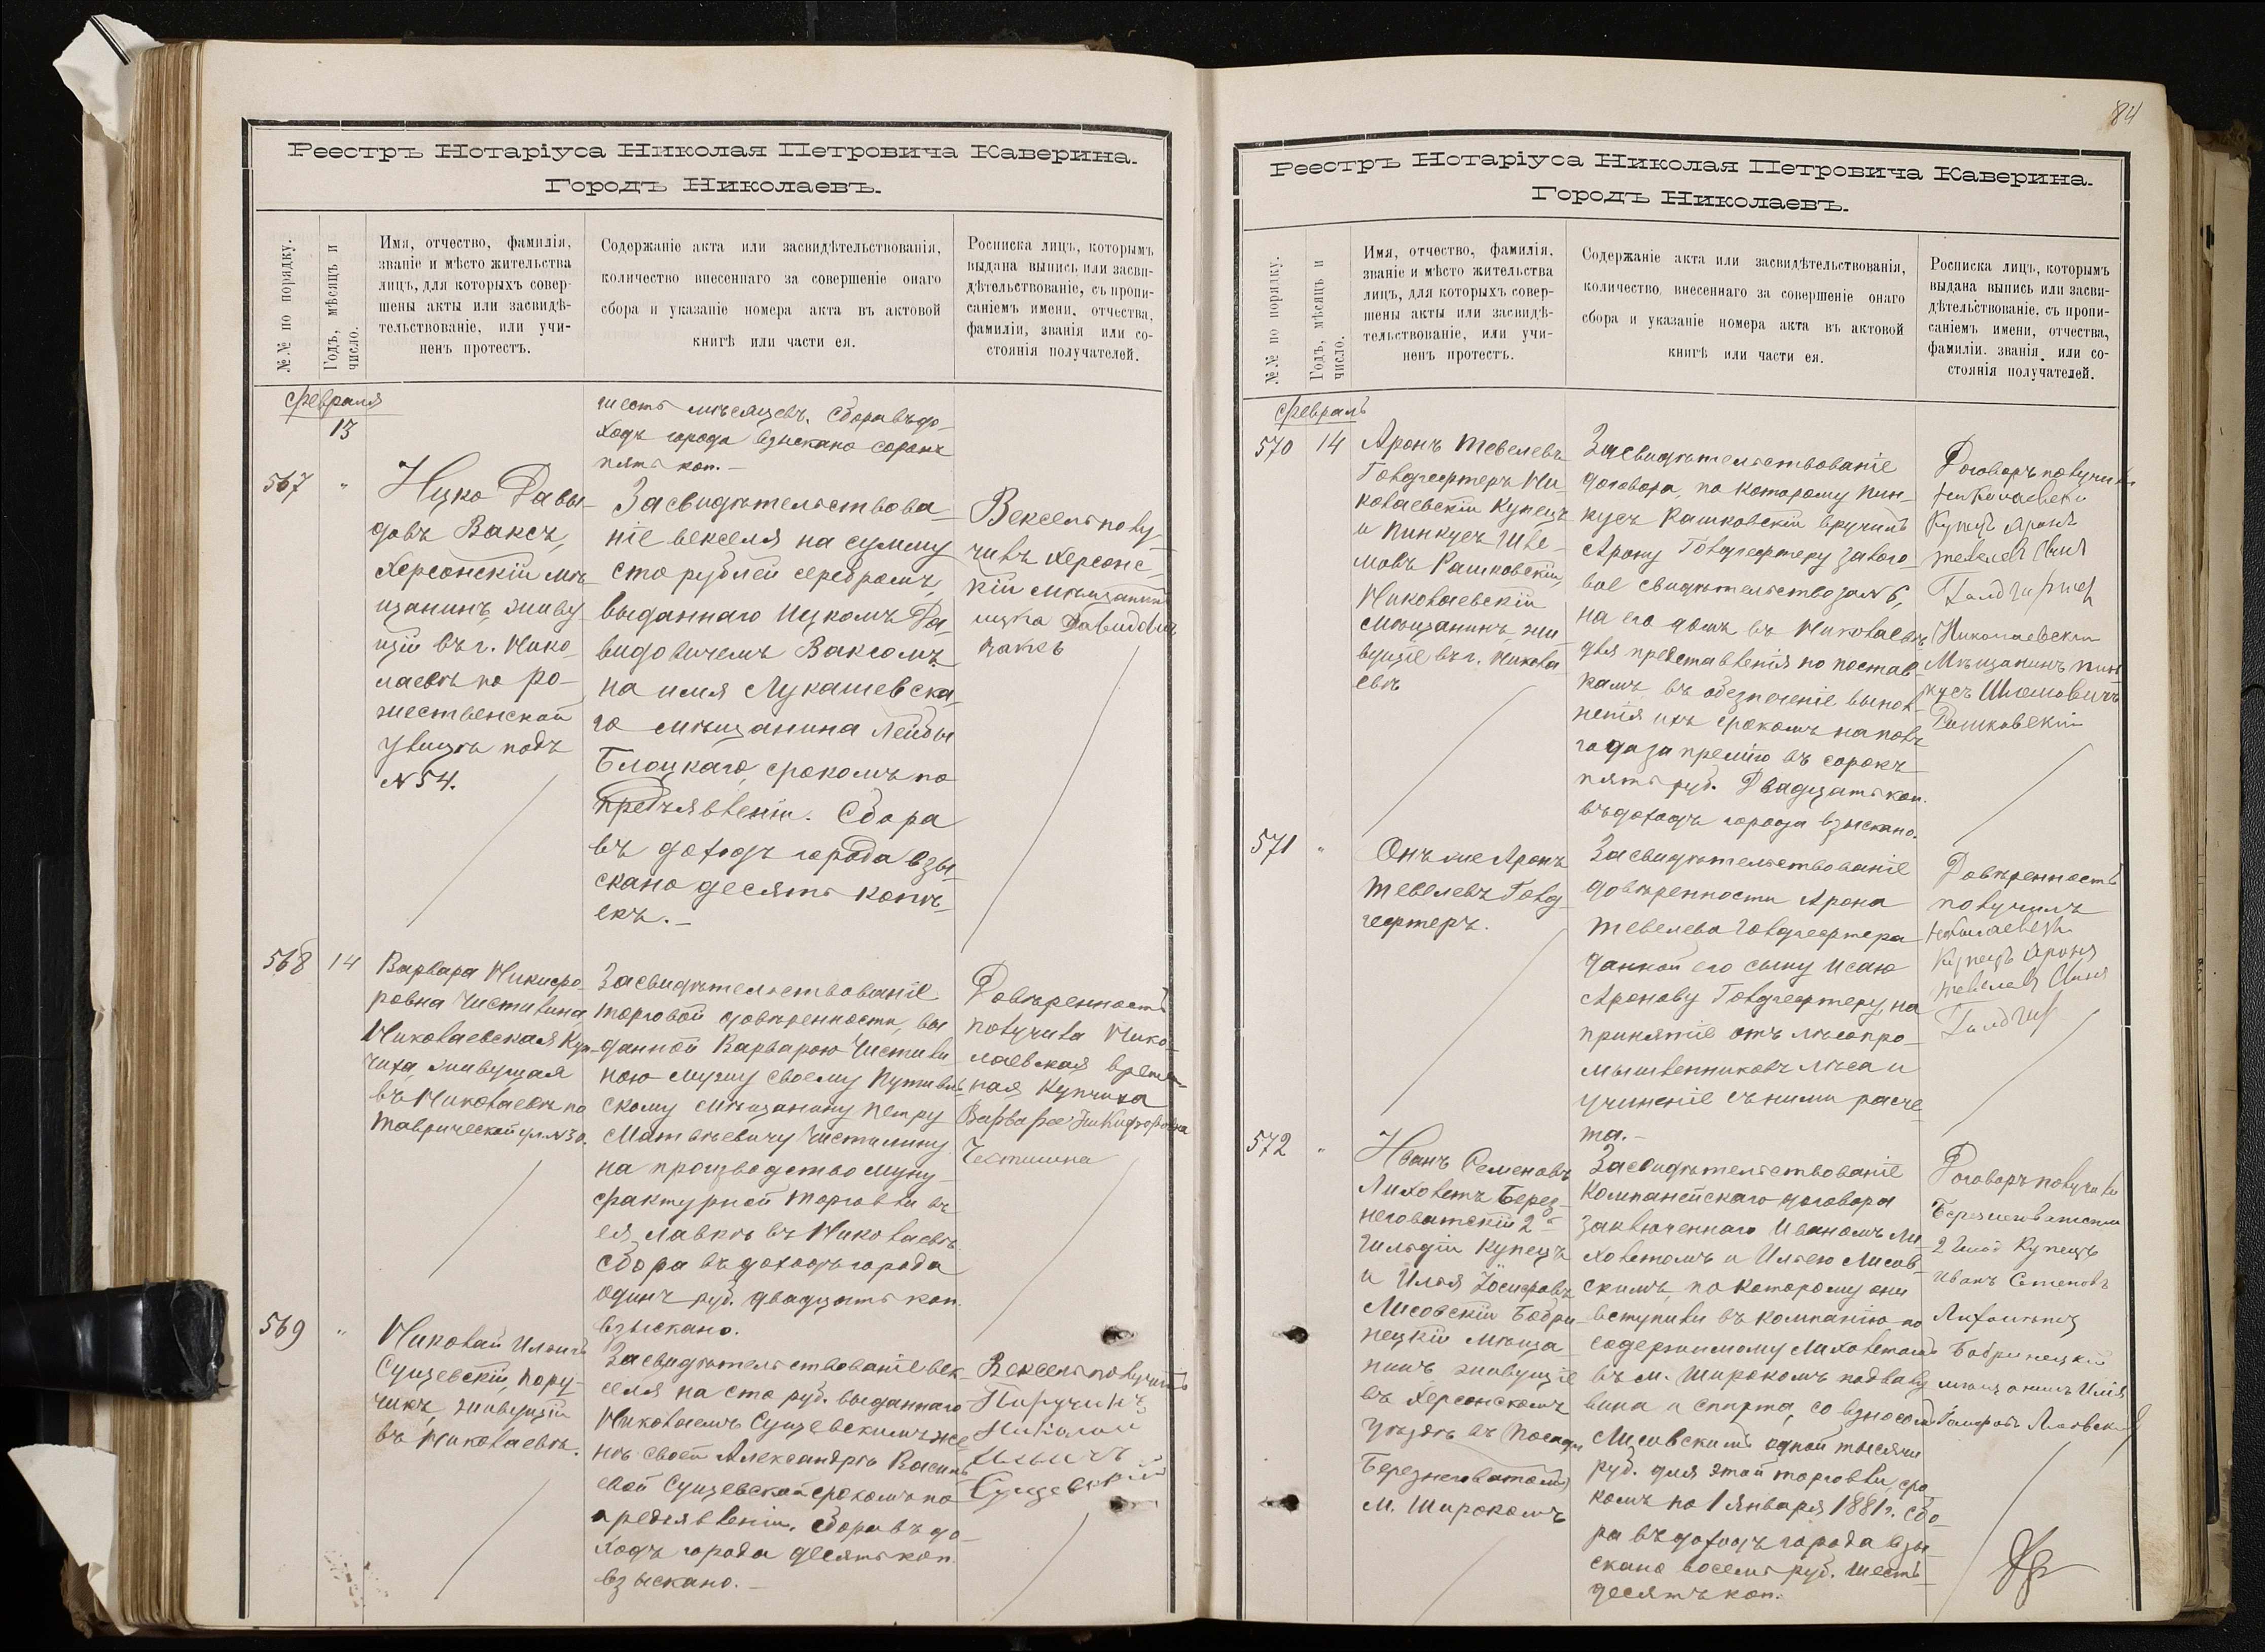 Реестръ Нотаріуса Николая Петровича Каверина.
Городъ Николаевъ.
№№ по порядку.
Годъ, мѣсяцъ и
число.
Имя, отчество, фамилія,
званіе и мѣсто жительства
лицъ, для которыхъ совер-
шены акты или засвидѣ-
тельствованіе, или учи-
ненъ протестъ.
Содержаніе акта или засвидѣтельствованія,
количество внесеннаго за совершеніе онаго
сбора и указаніе номера акта въ актовой
книгѣ или части ея.
Росписка лицъ, которымъ
выдана выпись или засви-
дѣтельствованіе, съ пропи-
саніемъ имени, отчества,
фамиліи, званія или со-
стоянія получателей.
Февраля
13
шесть мѣсяцевъ. Сбора въ до-
ходъ города взыскано сорокъ
пять коп.-
567
"
Ицко Давы-
довъ Ваксъ,
Херсонскій мѣ-
щанинъ, живу-
щій въ г. Нико-
лаевѣ по Ро-
жественской
улицѣ подъ
№ 54.
Засвидѣтельствова-
ніе векселя на сумму
сто рублей серебромъ,
выданнаго Ицкомъ Да-
видовичемъ Ваксомъ
на имя Лукашевска-
го мѣщанина Лейбы
Блоцкаго, срокомъ по
предъявленіи. Сбора
въ доходъ города взы-
скано десять копѣ-
екъ.-
Вексель полу-
чилъ Херсонс-
кій мѣщанинъ
ицко Давидовъ
568
14
Варвара Никифо-
ровна Чистилина
Николаевская Куп-
чиха, живущая
въ Николаевѣ по
Таврической ул. № 30.
Засвидѣтельствованіе
торговой довѣренности, вы-
данной Варварою Чистили-
ною мужу своему Путивль-
скому мѣщанину Петру
Матвѣевичу Чистилину
на производство ману-
фактурной торговли въ
ея лавкѣ въ Николаевѣ.
Сбора въ доходъ города
одинъ руб. двадцать коп.
взыскано.
Довѣренность
получила Нико-
лаевская времен-
ная Купчиха
Варвара Никифоровна
569
"
Николай Ильичъ
Сущевскій, пору-
чикъ, живущій
въ Николаевѣ.
Засвидѣтельствованіе век-
селя на сто руб. выданнаго
Николаемъ Сущевскимъ же-
нѣ своей Александрѣ Василь-
евой Сущевской срокомъ по
предъявленіи. Сбора въ до-
ходъ города десять коп.
взыскано.-
Вексель получилъ
Поручикъ
Николай
Ильичъ
Сущевскій
84
Реестръ Нотаріуса Николая Петровича Каверина.
Городъ Николаевъ.
№№ по порядку.
Годъ, мѣсяцъ и
число.
Имя, отчество, фамилія,
званіе и мѣсто жительства
лицъ, для которыхъ совер-
шены акты или засвидѣ-
тельствованіе, или учи-
ненъ протестъ.
Содержаніе акта или засвидѣтельствованія,
количество внесеннаго за совершеніе онаго
сбора и указаніе номера акта въ актовой
книгѣ или части ея.
Росписка лицъ, которымъ
выдана выпись или засви-
дѣтельствованіе, съ пропи-
саніемъ имени, отчества,
фамиліи, званія или со-
стоянія получателей.
Февраль
570
14
Аронъ Тевелевъ
Голдгефтеръ Ни-
колаевскій Купецъ
и Пинкусъ Шле-
мовъ Рашковскій,
Николаевскій
мѣщанинъ, жи-
вущіе въ г. Никола-
евѣ
Засвидѣтельствованіе
договора, по которому Пин-
кусъ Рашковскій вручилъ
Арону Голдгефтеру залого-
вое свидѣтельство за № 6,
на его домъ въ Николаевѣ,
для представленія по постав-
камъ, въ обезпеченіе выпол-
ненія ихъ срокомъ на полъ
года за премію въ сорокъ
пять руб. Двадцать коп.
въ доходъ города взыскано.
Договоръ получили
Николаевскій
Купецъ Аронъ
Тевелевъ
Николаевскій
Мѣщанинъ Пин-
кусъ Шлемовичъ
Рашковскій
571
"
Онъ же Аронъ
Тевелевъ Голд-
гефтеръ.
Засвидѣтельствованіе
довѣренности Арона
Тевелева Голдгефтера
данной его сыну Исаю
Аронову Голдгефтеру, на
принятіе отъ лѣсопро-
мышленниковъ лѣса и
учиненіе съ ними расче-
та.-
Довѣренность
получилъ
Николаевскій
Купецъ Аронъ
Тевелевъ
572
"
Иванъ Семеновъ
Лиховетъ Берез-
неговатскій 2й
гильдіи Купецъ
и Илья Іосифовъ
Лисовскій Бобри-
нецкій мѣща-
нинъ живущіе
въ Херсонскомъ
уѣздѣ въ Посадѣ
Березнеговатомъ
М. Широкомъ
Засвидѣтельствованіе
Компанейскаго договора
заключеннаго Иваномъ Ли-
ховетомъ и Ильею Лисов-
скимъ, по которому они
вступили въ компанію по
содержимому Лиховетомъ
въ м. Широкомъ подвалу
вина и спирта, со взносомъ
Лисовскимъ одной тысячи
руб. для этой торговли, сро-
комъ по 1 Января 1881 г. Сбо-
ра въ доходъ города взы-
скано восемь руб. шесть-
десятъ коп.
Договоръ получили
Березнеговатскій
2 Гильд Купецъ
Иванъ Семеновъ
Бобринецкій
мѣщанинъ Илья